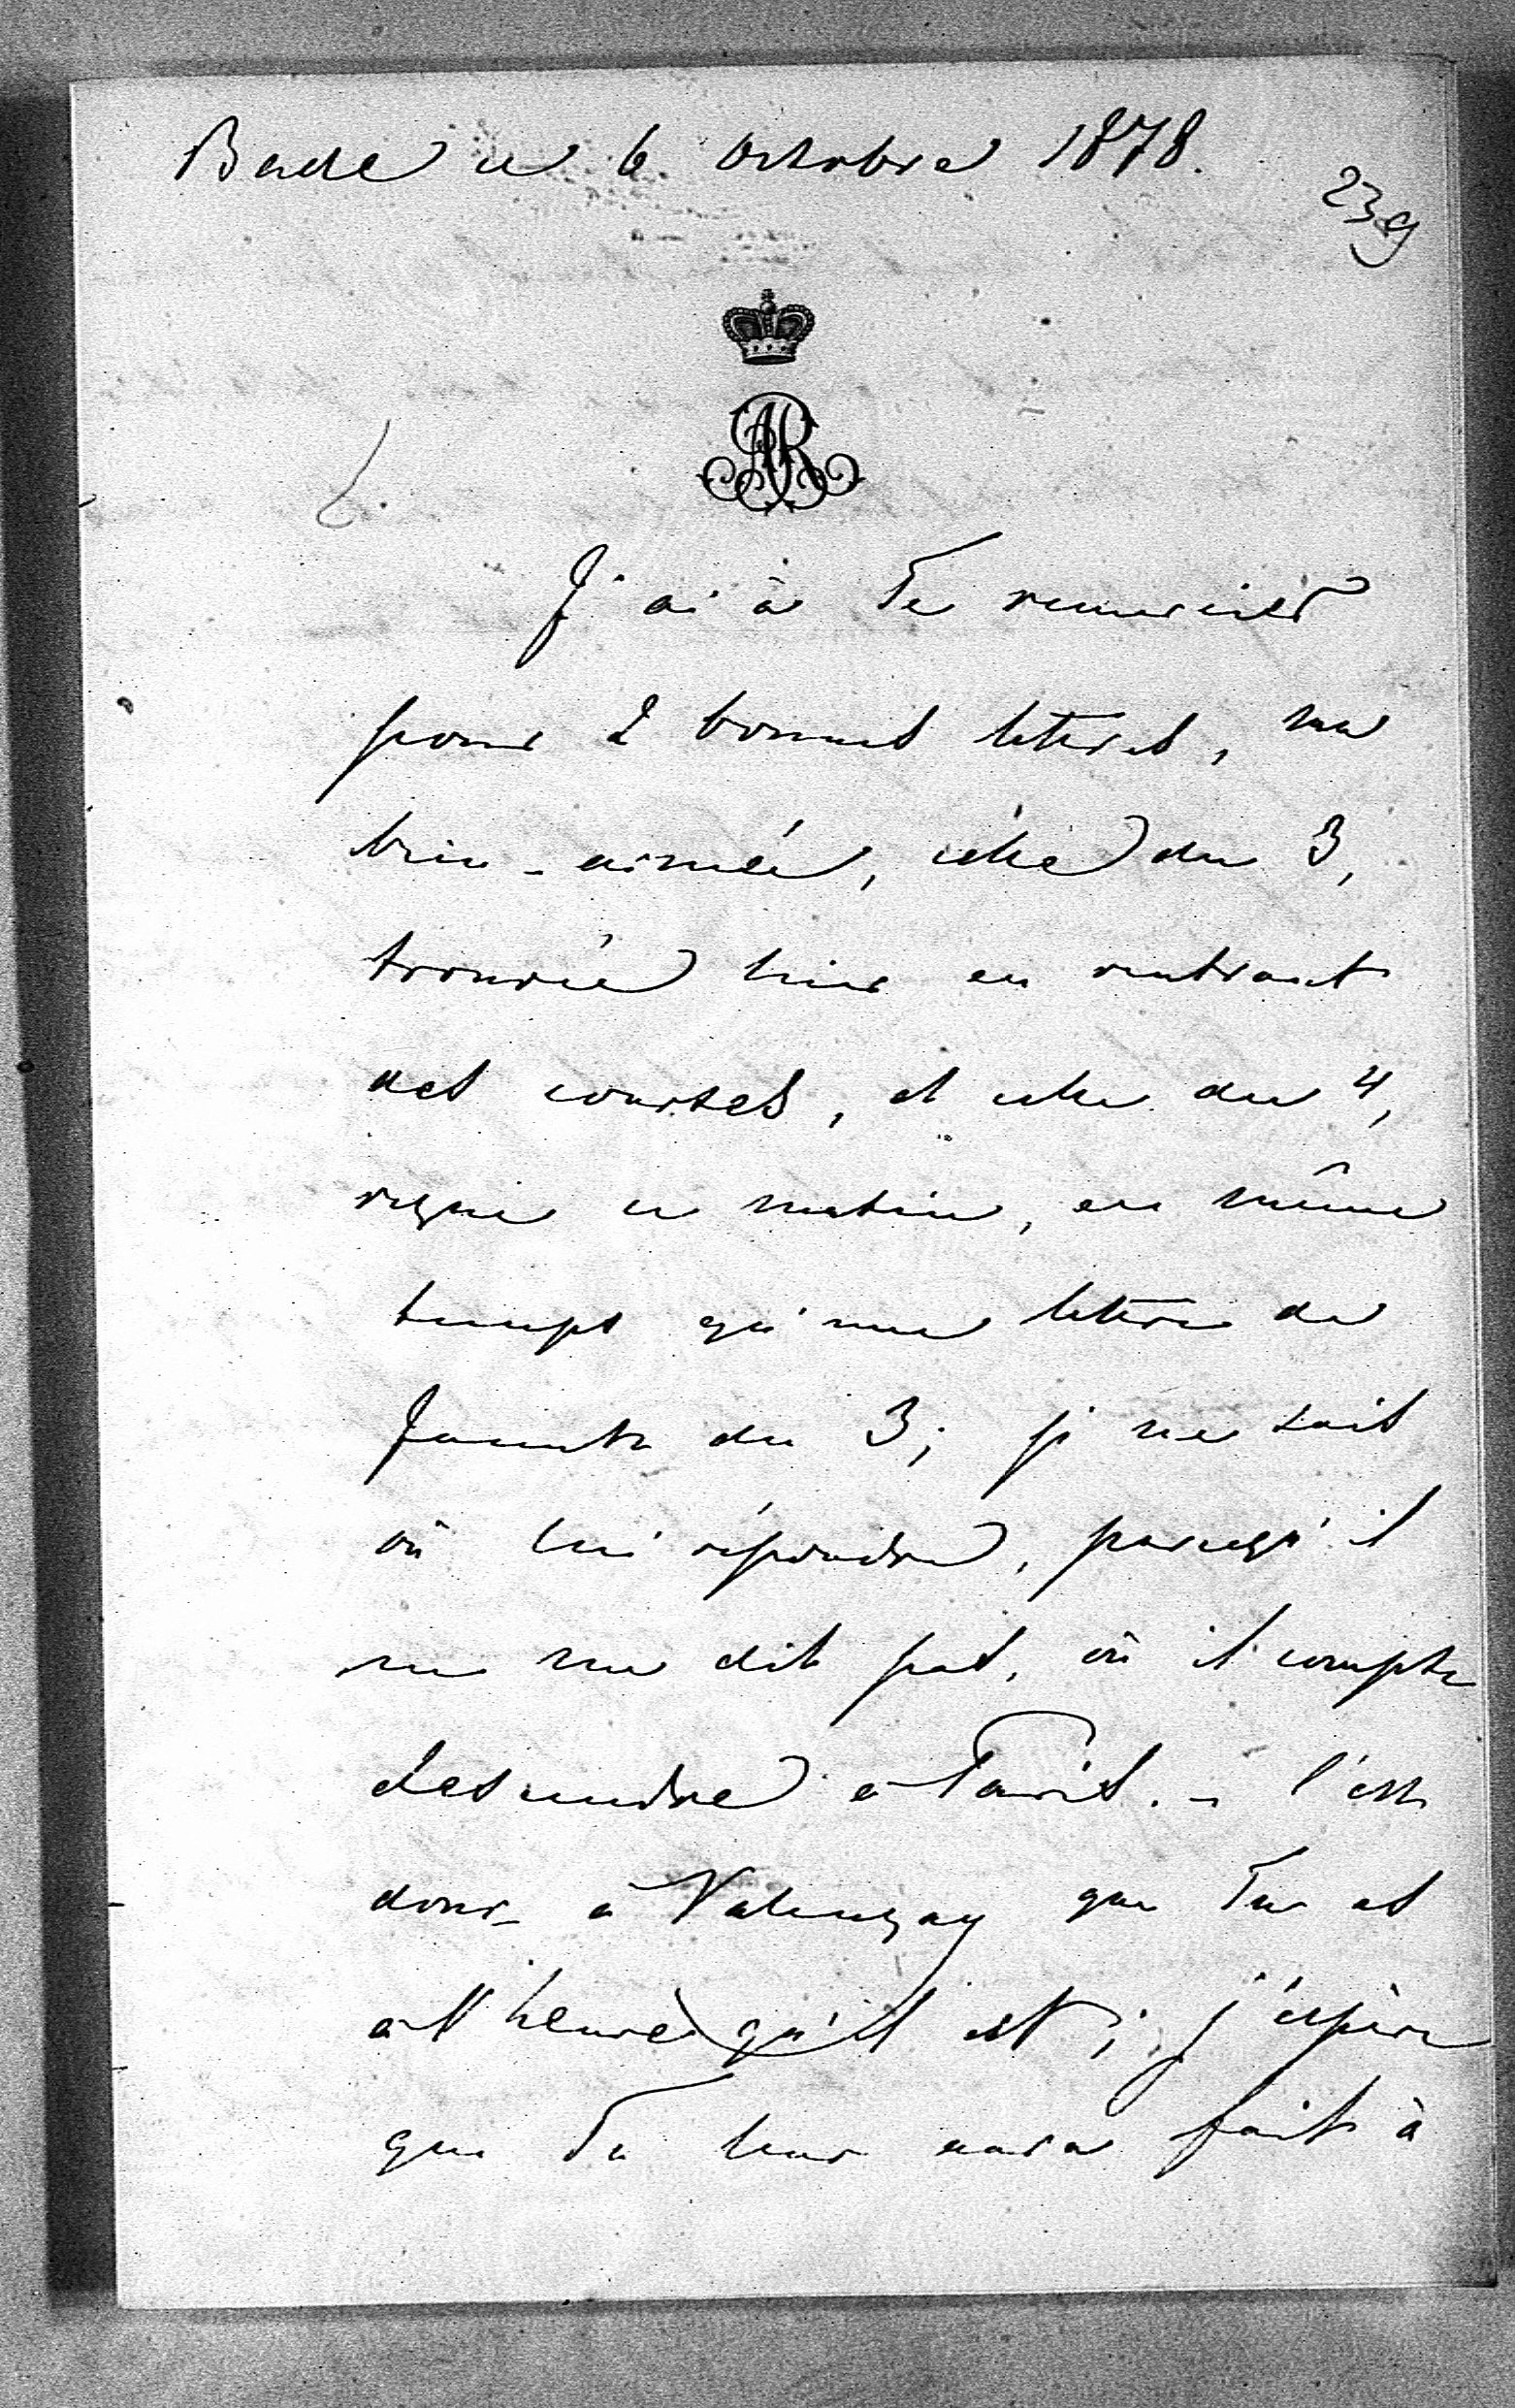 Bade ce 6 Octobre 1878.
239
AR
J'ai à Te remercier
pour 2 bonnes lettres, ma
bien-aimée, celle du 3,
trouvée hier en rentrant
des courses, et celle du 4,
reçue ce matin, en même
temps qu'une lettre de
du 3; je ne sais
où lui répondre, parcequ'il
ne me dit pas, où il compte
descendre à Paris. - C'est
donc à Valençay que Tu es
à l'heure qu'il est; j'espère
que Tu leur aura fait à